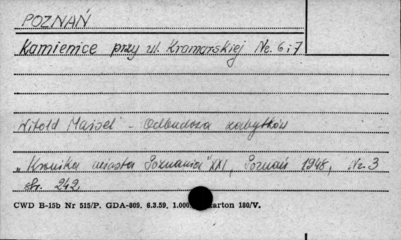 POZNAŃ
Kamienice przy ul. Kramarskiej Nr. 6 i 7
Witold Maisel - Odbudowa zabytków
"Kronika miasta Poznania" XXI, Poznań 1948, Nr. 3
str. 242.
CWD B-15b Nr 515/P. GDA-809. 6.3.59. 1.000 karton 180/V.